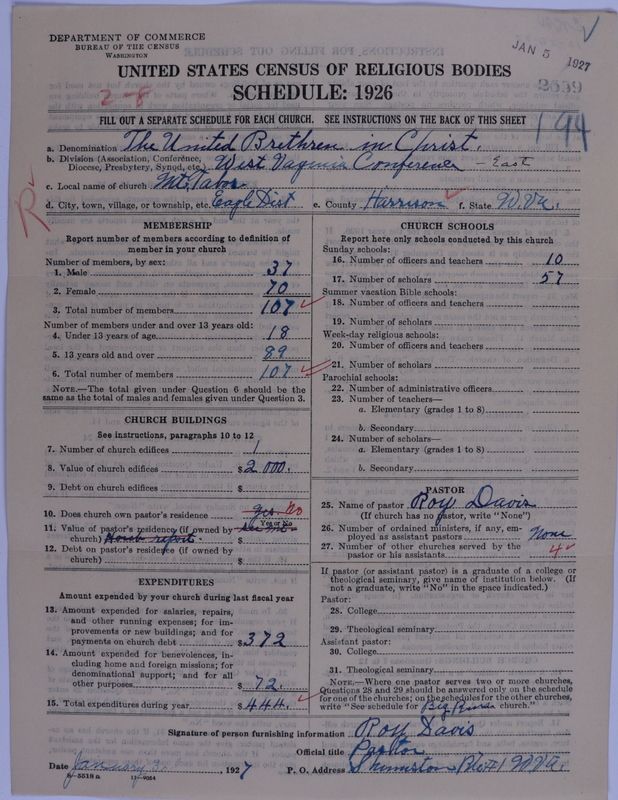 DEPARTMENT OF COMMERCE
BUREAU OF THE CENSUS
WASHINGTON
JAN 5 1927
UNITED STATES CENSUS OF RELIGIOUS BODIES
SCHEDULE: 1926
2-8
2659
194
FILL OUT A SEPARATE SCHEDULE FOR EACH CHURCH. SEE INSTRUCTIONS ON THE BACK OF THIS SHEET
a. Denomination The United Brethren in Christ.
b. Division (Association, Conference, Diocese, Presbytery, Synod, etc.) West Virginia Conference - East
c. Local name of church Mt. Tabor
d. City, town, village, or township, etc. Eagle Dist e. County Harrison f. State W. Va.
R
MEMBERSHIP
Report number of members according to definition of member in your church
Number of members, by sex:
1. Male 37
2. Female 70
3. Total number of members 107
Number of members under and over 13 years old:
4. Under 13 years of age 18
5. 13 years old and over 89
6. Total number of members 107
NOTE.—The total given under Question 6 should be the same as the total of males and females given under Question 3.
CHURCH BUILDINGS
See instructions, paragraphs 10 to 12
7. Number of church edifices 1
8. Value of church edifices $2000.
9. Debt on church edifices $
10. Does church own pastor's residence yes No
Yes or No
11. Value of pastor's residence (if owned by church) $
12. Debt on pastor's residence (if owned by church) $
EXPENDITURES
Amount expended by your church during last fiscal year
13. Amount expended for salaries, repairs, and other running expenses; for improvements or new buildings; and for payments on church debt $372
14. Amount expended for benevolences, including home and foreign missions; for denominational support; and for all other purposes $72.
15. Total expenditures during year $444.
CHURCH SCHOOLS
Report here only schools conducted by this church
Sunday schools:
16. Number of officers and teachers 10
17. Number of scholars 57
Summer vacation Bible schools:
18. Number of officers and teachers
19. Number of scholars
Week-day religious schools:
20. Number of officers and teachers
21. Number of scholars
Parochial schools:
22. Number of administrative officers
23. Number of teachers—
a. Elementary (grades 1 to 8)
b. Secondary
24. Number of scholars—
a. Elementary (grades 1 to 8)
b. Secondary
PASTOR
25. Name of pastor Roy Davis
(If church has no pastor, write "None")
26. Number of ordained ministers, if any, employed as assistant pastors None
27. Number of other churches served by the pastor or his assistants 4
If pastor (or assistant pastor) is a graduate of a college or theological seminary, give name of institution below. (If not a graduate, write "No" in the space indicated.)
Pastor:
28. College
29. Theological seminary
Assistant pastor:
30. College
31. Theological seminary
NOTE.—Where one pastor serves two or more churches, Questions 28 and 29 should be answered only on the schedule for one of the churches; on the schedules for the other churches, write "See schedule for Big church."
Signature of person furnishing information Roy Davis
Official title Pastor
Date January 3, 1927 P. O. Address Shinnston W. Va.
8-5518 a 11-9054